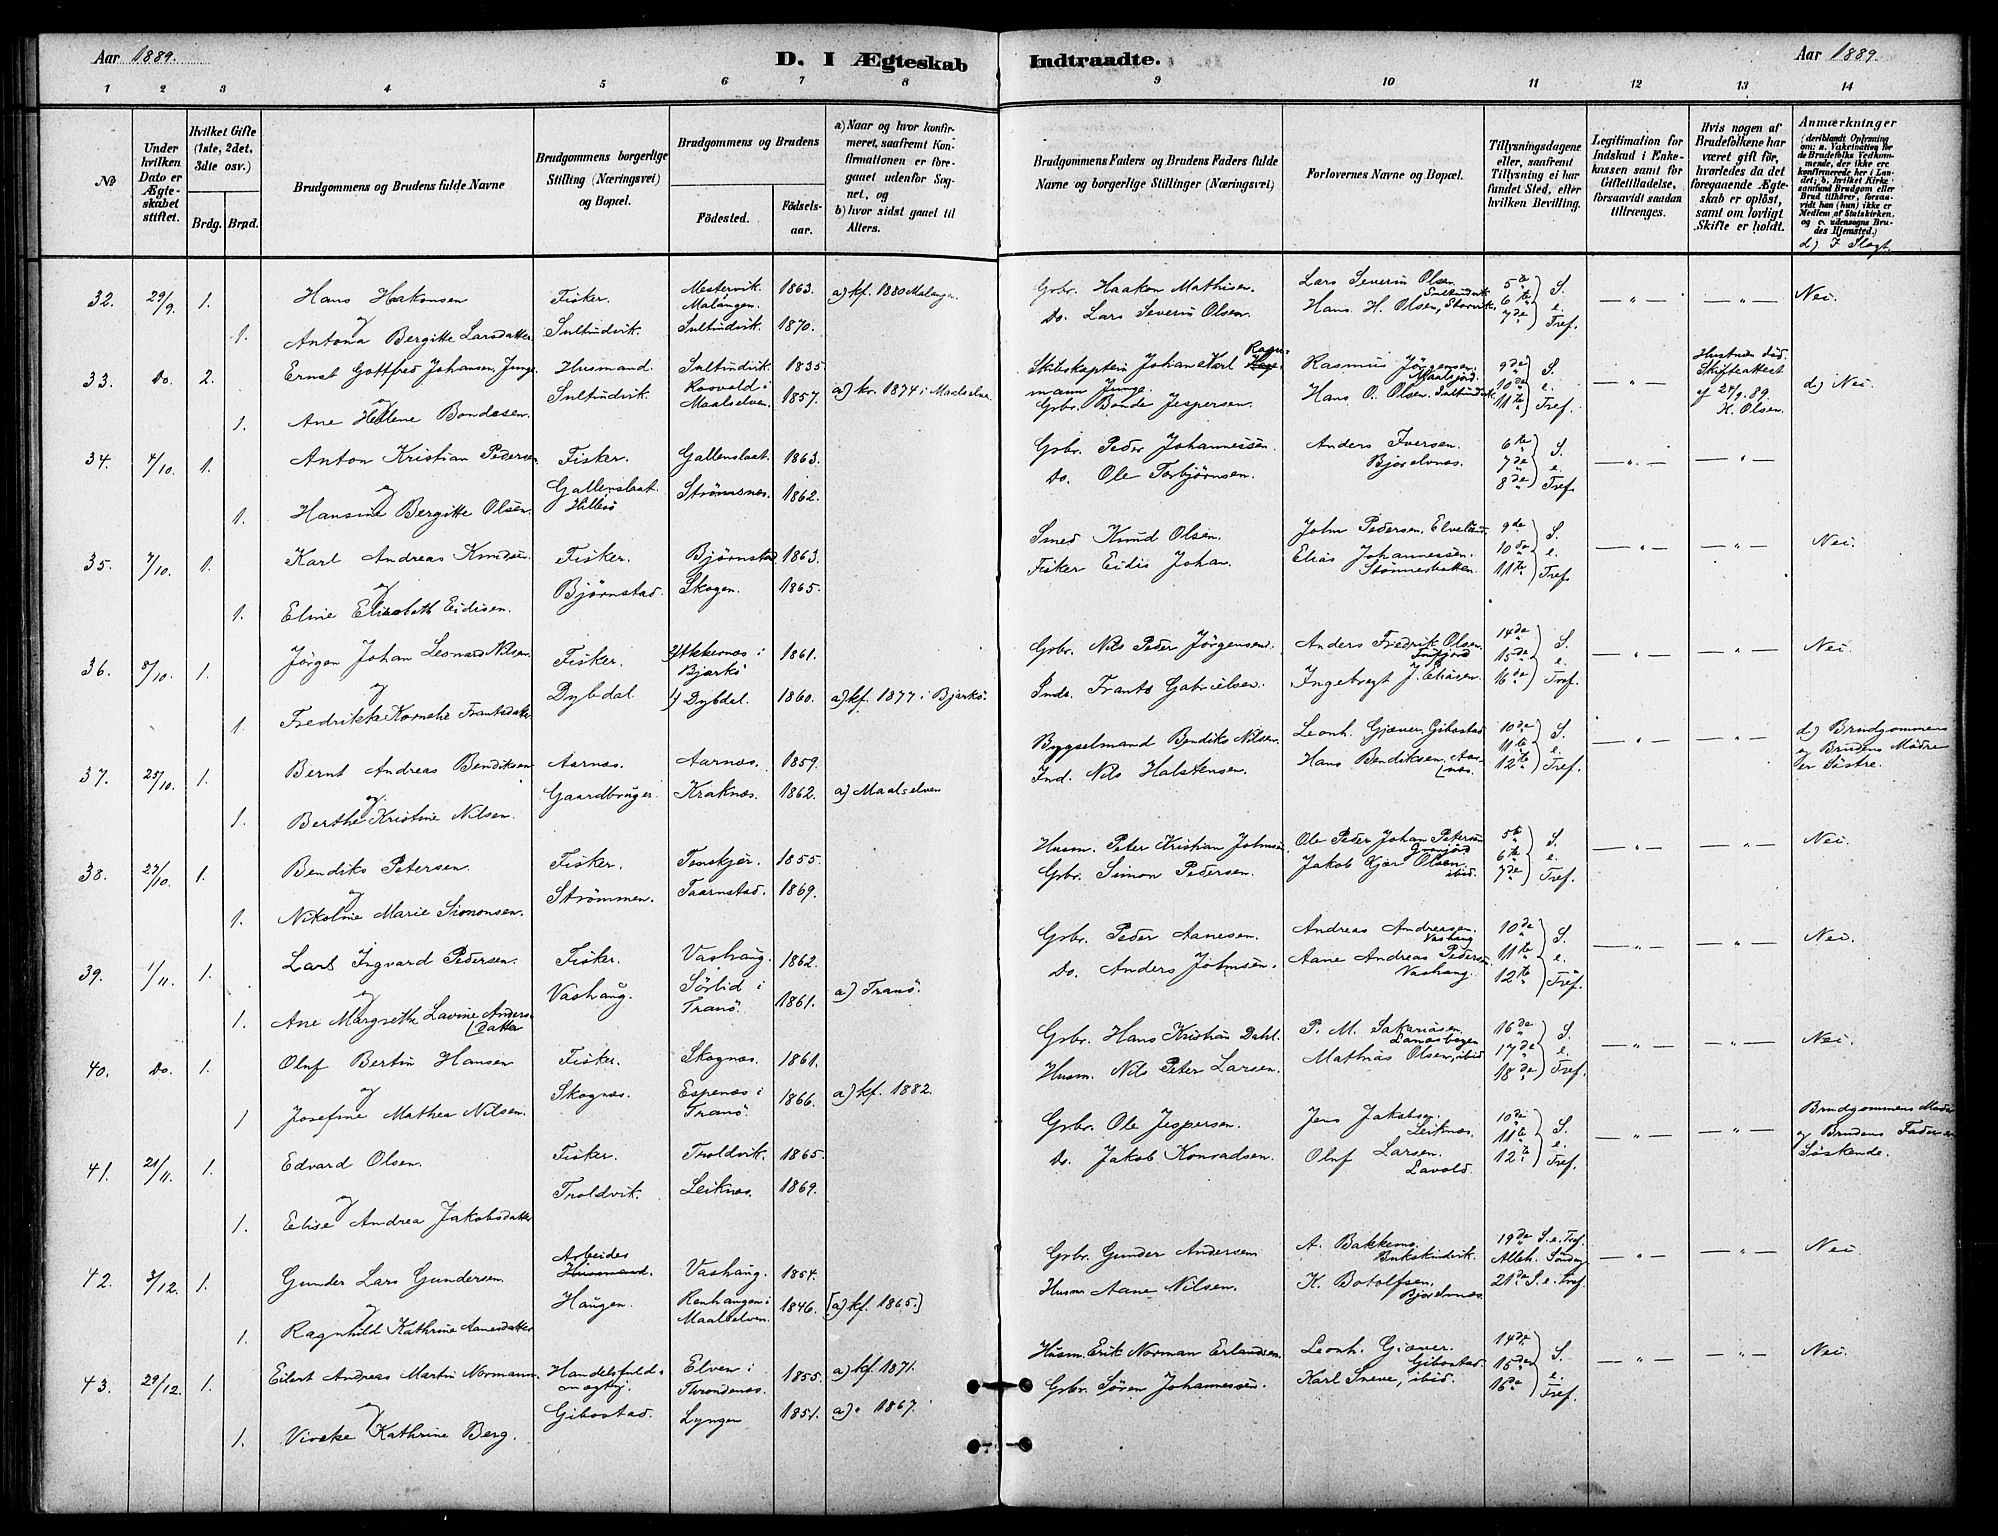 Aar 1889.
D. I Ægteskab Indtraadte.
Aar 1889.
1 2 3 4 5 6 7 8 9 10 11 12 13 14
№
Under hvilken Dato er Ægteskabet stiftet.
Hvilket Gifte (1ste, 2det, 3die osv.)
Brdg. Brud.
Brudgommens og Brudens fulde Navne
Brudgommens borgerlige Stilling (Næringsvei) og Bopæl.
Brudgommens og Brudens
Födested.
Födselsaar.
a) Naar og hvor konfirmeret, saafremt Konfirmationen er foregaaet udenfor Sognet, og
b) hvor sidst gaaet til Alters.
Brudgommens Faders og Brudens Faders fulde Navne og borgerlige Stillinger (Næringsvei)
Forlovernes Navne og Bopæl.
Tillysningsdagene eller, saafremt Tillysning ei har fundet Sted, efter hvilken Bevilling.
Legitimation for Indskud i Enkekassen samt for Giftetilladelse, forsaavidt saadan tiltrænges.
Hvis nogen af Brudefolkene har været gift før, hvorledes da det foregaaende Ægteskab er opløst, samt om lovligt Skifte er holdt.
Anmærkninger
(deriblandt Oplysning om: a. Vakcination for de Brudefolks Vedkommende, der ikke ere konfirmerede her i Landet; b. hvilket Kirkesamfund Brudgom eller Brud tilhører, forsaavidt han (hun) ikke er Medlem af Statskirken, og c. udensogns Brudes Hjemsted.)
d) I Slægt.
32. 29/9 1. Hans Hakonsen Fisker. Mestervik. Malangen. 1863. a) kf. 1880 Malangen. Grbr. Haakon Mathisen Lars Severin Olsen, Sultindvik 5te 6te 7de S. e. Tref. — „ — — „ — Nei.
og
1. Antona Bergitte Larsdatter Sultindvik Sultindvik. 1870. Do. Lars Severin Olsen. Hans H. Olsen, Storvik.
33. Do. 2. Ernst Gottfred Johansen Junge Husmand. Sultindvik 1835. Skibskaptein Johan Karl Rasmus Jörgensen. Maalsjord. 9de 10de 11te S. e. Tref. — „ — Hustruen död. Skifteattest af 24/9 89. K. Olsen. d) Nei
og
1. Ane Helene Bondesen. Sultindvik. Rosvold i Maalselven. 1857. a) kr. 1874 i Maalselven mann Junge. Grbr. Bonde Jespersen. Hans O. Olsen. Sultindvik
34. 4/10. 1. Anton Kristian Pedersen Fisker. Gallenslaat. 1863. Grbr. Peder Johannessen Anders Iversen. Bjorelvnes. 6te 7de 8de S. e. Tref. — „ — — „ —
og
1. Hansine Bergitte Olsen. Gallenslaat. Hillesö Strömsnes. 1862. Do. Ole Torbjörnsen.
35. 7/10. 1. Karl Andreas Knudsen. Fisker. Björnstad. 1863. Smed Knud Olsen. John Pedersen, Elvelund 9de 10de 11te S. e. Tref. — „ — — „ — Nei.
og
1. Eline Elisabeth Eidisen. Björnstad. Skogen. 1865. Fisker Eidis Johan. Elias Johannessen.
36. 8/10. 1. Jörgen Johan Leonard Nilsen. Fisker. Akkernes i Bjarkö 1861. Grbr. Nils Peder Jörgensen. Anders Fredrik Olsen. 14de 15de 16de S. e. Tref. — „ — — „ — Nei.
og
1. Fredrikke Kornelie Frantsdatter Dybdal Dybdal. 1860. a) kf. 1877 i Bjarkö. Inds. Frants Gabrielsen. Ingebregt J. Eliasen.
37. 25/10. 1. Bernt Andreas Bendiksen Aarnes. Aarnes. 1859. Bygselmand Bendiks Nilsen. Leonh. Gjæver, Gibostad 10de 11te 12te S. e. Tref. — „ — — „ — d) Brudgommens og Brudens Mödre er Söstre.
og
1. Berthe Kristine Nilsen. Gaardbruger. Kraknes. 1862. a) Maalselven Ind. Nils Halstensen. Hans Bendiksen, Aarnes.
38. 27/10. 1. Bendiks Petersen. Fisker. Tenskjer. 1855. Husm. Peter Kristian Johnsen. Ole Peder Johan Petersen 5te 6te 7de S. e. Tref. — „ — — „ — Nei.
og
1. Nikoline Marie Simonsen. Strömmen. Taarnstad. 1869. Grbr. Simon Pedersen. Jakob Kjær Olsen. ibid.
39. 1/11. 1. Lars Ingvard Pedersen. Fisker. Vashaug. 1862. Grbr. Peder Aanesen. Andreas Andreasen. Vashaug 10de 11te 12te S. e. Tref. — „ — — „ — Nei.
og
1. Ane Margrethe Lavine Andersdatter Vashaug. Sörlid i Tranö. 1861. a) Tranö. Do. Anders Johnsen. Aane Andreas Pedersen Vashaug.
40. Do. 1. Oluf Bertin Hansen Fisker. Skognes. 1861. Grbr. Hans Kristian Dahl. P. M. Sakariasen. Lanesbogen 16de 17de 18de S. e. Tref. — „ — — „ — Nei.
og
1 Josefine Mathea Nilsen. Skognes. Espenes i Tranö. 1866. a) kf. 1882. Husm. Nils Peter Larsen. Mathias Olsen, ibid
41. 21/11. 1. Edvard Olsen. Fisker. Troldvik. 1865. Grbr. Ole Jespersen. Jens Jakobsen. Leiknes. 10de 11te 12te S. e. Tref. — „ — — „ — Brudgommens Moder og Brudens Fader er Söskende.
og
1. Elise Andrea Jakobsdatter Troldvik. Leiknes. 1869. Do. Jakob Konradsen. Oluf Larsen. Lavold.
42. 3/12. 1. Gunder Lars Gundersen. Arbeider Husmand. Vashaug. 1854. Grbr. Gunder Andersen A. Bakkemo. Bukskindvik. 19de S. e. Tref. Alleh. Söndag 21de S. e. Tref — „ — — „ — Nei.
og
1. Ragnhild Kathrine Aanesdatter Haugen. Renhaugen i Maalselven. 1846. [a) kf. 1865.] Husm Aane Nilsen. K. Botolfsen. Bjorelvnes.
43. 29/12. 1. Eilert Andreas Martin Normann Handelsfuldmægtig. Elven i Throndenes. 1855. a) kf. 1871. Husm. Erik Norman Erlandsen. Leonh. Gjæver. Gibostad. 14de 15de 16de S. e. Tref. — „ — — „ — Nei.
og
1. Viveke Kathrine Berg. Gibostad. Lyngen 1851. a) „ 1867. Grbr. Sören Johannessen. Karl Sneve, ibid.